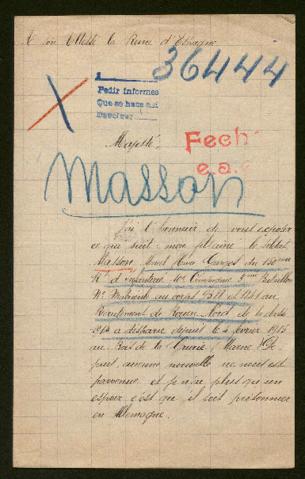 Sa Majesté la Reine d'Espagne
36444
Pedir informes
Que se hace así
Majesté,
Fech
e.a.
Masson
J'ai l'honneur de vous exposer
ce que suit: mon fils aîné le soldat
Masson, Henri du 150ème
Rt d'infanterie 1ère Compagnie Bataillon
No Matricule au corps et 1141 au
Recrutement de Rouen Nord de la classe
1914 a disparu depuis le 4 février 1915
au Bois de la Grurie (Marne) De
puis aucune nouvelle ne m'est
parvenue et je n'ai plus qu'un
espoir c'est que il soit prisonnier
en Allemagne.